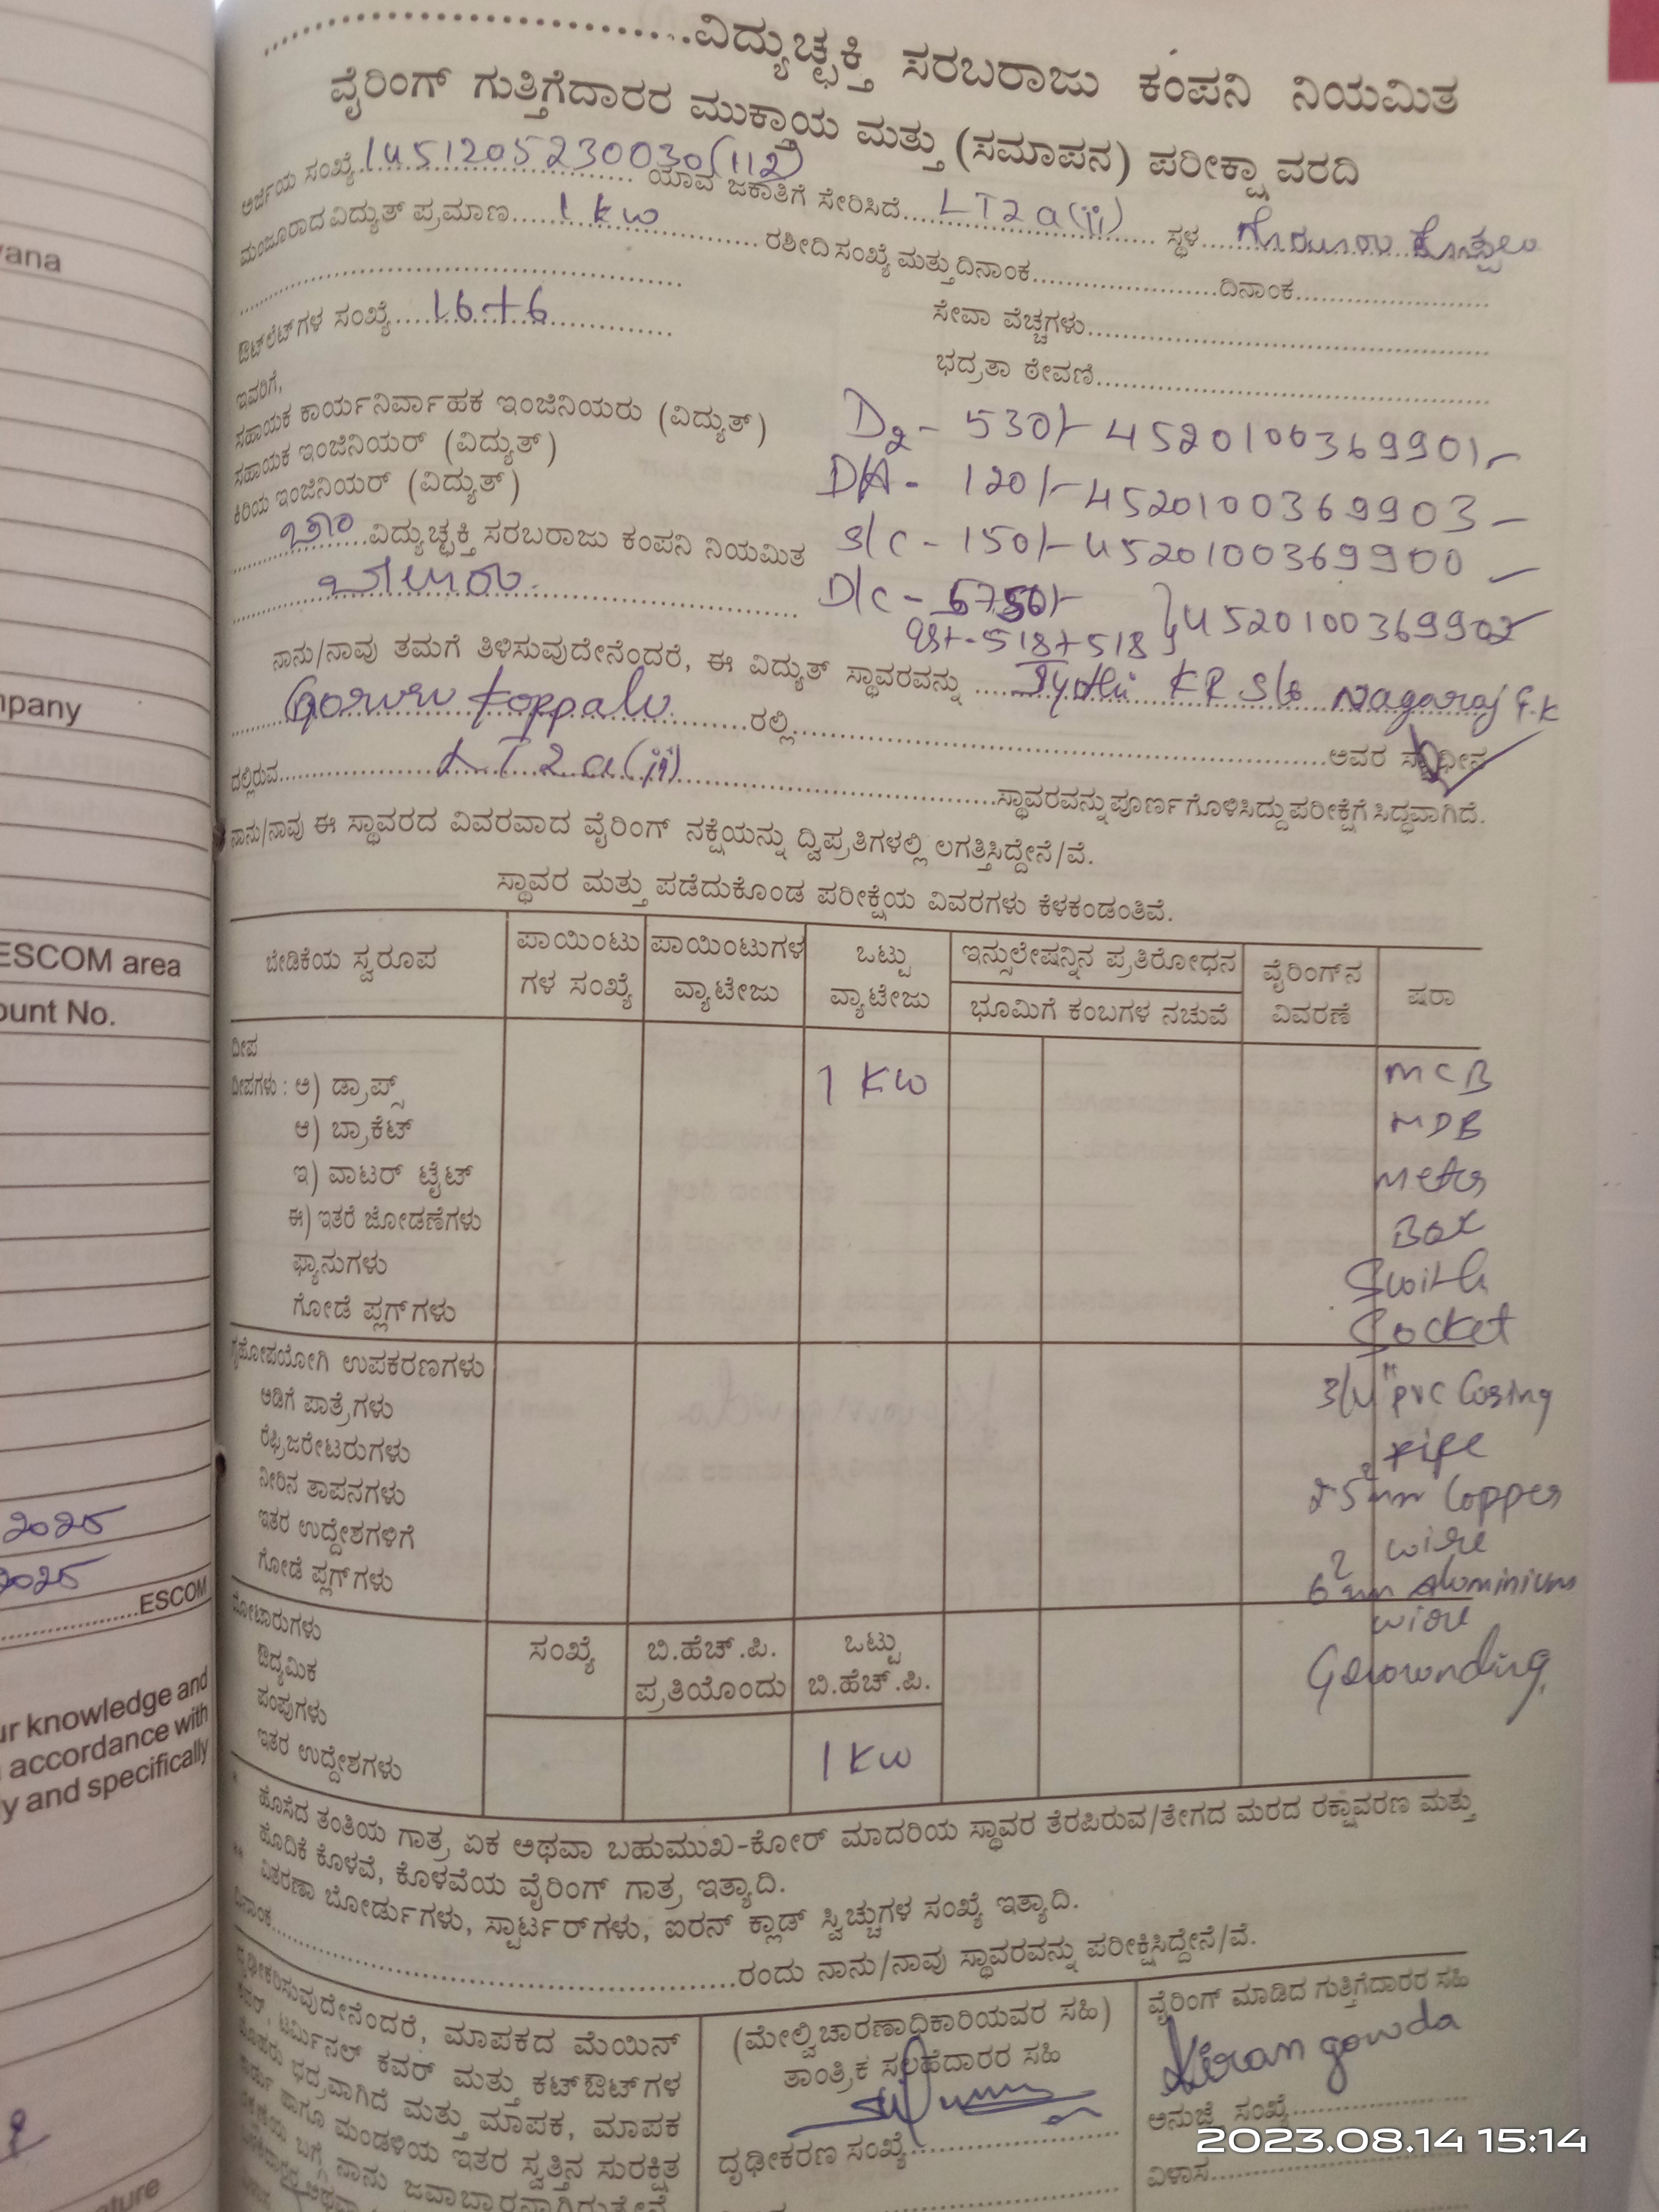 ....................ವಿದ್ಯುಚ್ಛಕ್ತಿ ಸರಬರಾಜು ಕಂಪನಿ ನಿಯಮಿತ
ವೈರಿಂಗ್ ಗುತ್ತಿಗೆದಾರರ ಮುಕ್ತಾಯ ಮತ್ತು (ಸಮಾಪನ) ಪರೀಕ್ಷಾ ವರದಿ
ಅರ್ಜಿಯ ಸಂಖ್ಯೆ 1451205230030(112) ಯಾವ ಜಕಾತಿಗೆ ಸೇರಿಸಿದೆ LT2a(ii) ಸ್ಥಳ
ಮಂಜೂರಾದ ವಿದ್ಯುತ್ ಪ್ರಮಾಣ 1 kw ರಶೀದಿ ಸಂಖ್ಯೆ ಮತ್ತು ದಿನಾಂಕ ದಿನಾಂಕ
ಔಟ್‌ಲೆಟ್‌ಗಳ ಸಂಖ್ಯೆ 16+6 ಸೇವಾ ವೆಚ್ಚಗಳು
ಭದ್ರತಾ ಠೇವಣಿ
ಇವರಿಗೆ,
ಸಹಾಯಕ ಕಾರ್ಯನಿರ್ವಾಹಕ ಇಂಜಿನಿಯರು (ವಿದ್ಯುತ್)
ಸಹಾಯಕ ಇಂಜಿನಿಯರ್ (ವಿದ್ಯುತ್)
ಕಿರಿಯ ಇಂಜಿನಿಯರ್ (ವಿದ್ಯುತ್)
ವಿದ್ಯುಚ್ಛಕ್ತಿ ಸರಬರಾಜು ಕಂಪನಿ ನಿಯಮಿತ
D2 - 530/- 4520100369901
120/- 4520100369903
S/C - 150/- 4520100369900
D/C - 6750/-
518+518 } 4520100369902
ನಾನು/ನಾವು ತಮಗೆ ತಿಳಿಸುವುದೇನೆಂದರೆ, ಈ ವಿದ್ಯುತ್ ಸ್ಥಾವರವನ್ನು Jyothi KR S/o Nagaraj G.K
Goruru koppalu ರಲ್ಲಿ ಅವರ ಸ್ವಾಧೀನ
ದಲ್ಲಿರುವ LT2a(ii) ಸ್ಥಾವರವನ್ನು ಪೂರ್ಣಗೊಳಿಸಿದ್ದು ಪರೀಕ್ಷೆಗೆ ಸಿದ್ಧವಾಗಿದೆ.
ನಾನು/ನಾವು ಈ ಸ್ಥಾವರದ ವಿವರವಾದ ವೈರಿಂಗ್ ನಕ್ಷೆಯನ್ನು ದ್ವಿಪ್ರತಿಗಳಲ್ಲಿ ಲಗತ್ತಿಸಿದ್ದೇನೆ/ವೆ.
ಸ್ಥಾವರ ಮತ್ತು ಪಡೆದುಕೊಂಡ ಪರೀಕ್ಷೆಯ ವಿವರಗಳು ಕೆಳಕಂಡಂತಿವೆ.
ಬೇಡಿಕೆಯ ಸ್ವರೂಪ
ಪಾಯಿಂಟುಗಳ ಸಂಖ್ಯೆ
ಪಾಯಿಂಟುಗಳ ವ್ಯಾಟೇಜು
ಒಟ್ಟು ವ್ಯಾಟೇಜು
ಇನ್ಸುಲೇಷನ್ನಿನ ಪ್ರತಿರೋಧನ
ಭೂಮಿಗೆ ಕಂಬಗಳ ನಚುವೆ
ವೈರಿಂಗ್‌ನ ವಿವರಣೆ
ಷರಾ
ದೀಪ
ದೀಪಗಳು : ಅ) ಡ್ರಾಪ್ಸ್ 1 KW MCB
ಆ) ಬ್ರಾಕೆಟ್ MDB
ಇ) ವಾಟರ್ ಟೈಟ್ Meter
ಈ) ಇತರೆ ಜೋಡಣೆಗಳು Box
ಫ್ಯಾನುಗಳು Swith
ಗೋಡೆ ಪ್ಲಗ್‌ಗಳು Socket
ಗೃಹೋಪಯೋಗಿ ಉಪಕರಣಗಳು
ಅಡಿಗೆ ಪಾತ್ರೆಗಳು 3/4" PVC Casing
ರೆಫ್ರಿಜರೇಟರುಗಳು Pipe
ನೀರಿನ ತಾಪನಗಳು 2.5 mm2 Copper
ಇತರ ಉದ್ದೇಶಗಳಿಗೆ wire
ಗೋಡೆ ಪ್ಲಗ್‌ಗಳು 6 mm2 Aluminium
ಮೋಟಾರುಗಳು wire
ಔದ್ಯಮಿಕ Gerounding
ಪಂಪುಗಳು
ಇತರ ಉದ್ದೇಶಗಳು
ಸಂಖ್ಯೆ
ಬಿ.ಹೆಚ್.ಪಿ. ಪ್ರತಿಯೊಂದು
ಒಟ್ಟು ಬಿ.ಹೆಚ್.ಪಿ.
1 KW
* ಹೊಸೆದ ತಂತಿಯ ಗಾತ್ರ ಏಕ ಅಥವಾ ಬಹುಮುಖ-ಕೋರ್ ಮಾದರಿಯ ಸ್ಥಾವರ ತೆರಪಿರುವ/ತೇಗದ ಮರದ ರಕ್ಷಾವರಣ ಮತ್ತು
ಹೊದಿಕೆ ಕೊಳವೆ, ಕೊಳವೆಯ ವೈರಿಂಗ್ ಗಾತ್ರ ಇತ್ಯಾದಿ.
** ವಿತರಣಾ ಬೋರ್ಡುಗಳು, ಸ್ಟಾರ್ಟರ್‌ಗಳು, ಐರನ್ ಕ್ಲಾಡ್ ಸ್ವಿಚ್ಚುಗಳ ಸಂಖ್ಯೆ ಇತ್ಯಾದಿ.
ದಿನಾಂಕ ರಂದು ನಾನು/ನಾವು ಸ್ಥಾವರವನ್ನು ಪರೀಕ್ಷಿಸಿದ್ದೇನೆ/ವೆ.
ದೃಢೀಕರಿಸುವುದೇನೆಂದರೆ, ಮಾಪಕದ ಮೆಯಿನ್
ಕವರ್, ಟರ್ಮಿನಲ್ ಕವರ್ ಮತ್ತು ಕಟ್‌ಔಟ್‌ಗಳ
ಭದ್ರವಾಗಿದೆ ಮತ್ತು ಮಾಪಕ, ಮಾಪಕ
ಹಾಗೂ ಮಂಡಳಿಯ ಇತರ ಸ್ವತ್ತಿನ ಸುರಕ್ಷಿತ
ಬಗ್ಗೆ ನಾನು ಜವಾಬ್ದಾರನಾಗಿರುತ್ತೇನೆ
(ಮೇಲ್ವಿಚಾರಣಾಧಿಕಾರಿಯವರ ಸಹಿ)
ತಾಂತ್ರಿಕ ಸಲಹೆದಾರರ ಸಹಿ
ದೃಢೀಕರಣ ಸಂಖ್ಯೆ
ವೈರಿಂಗ್ ಮಾಡಿದ ಗುತ್ತಿಗೆದಾರರ ಸಹಿ
Kiran gowda
ಅನುಜ್ಞೆ ಸಂಖ್ಯೆ
ವಿಳಾಸ
2023.08.14 15:14
ESCOM area
ount No.
2025
2025
ESCOM
ur knowledge and
accordance with
y and specifically